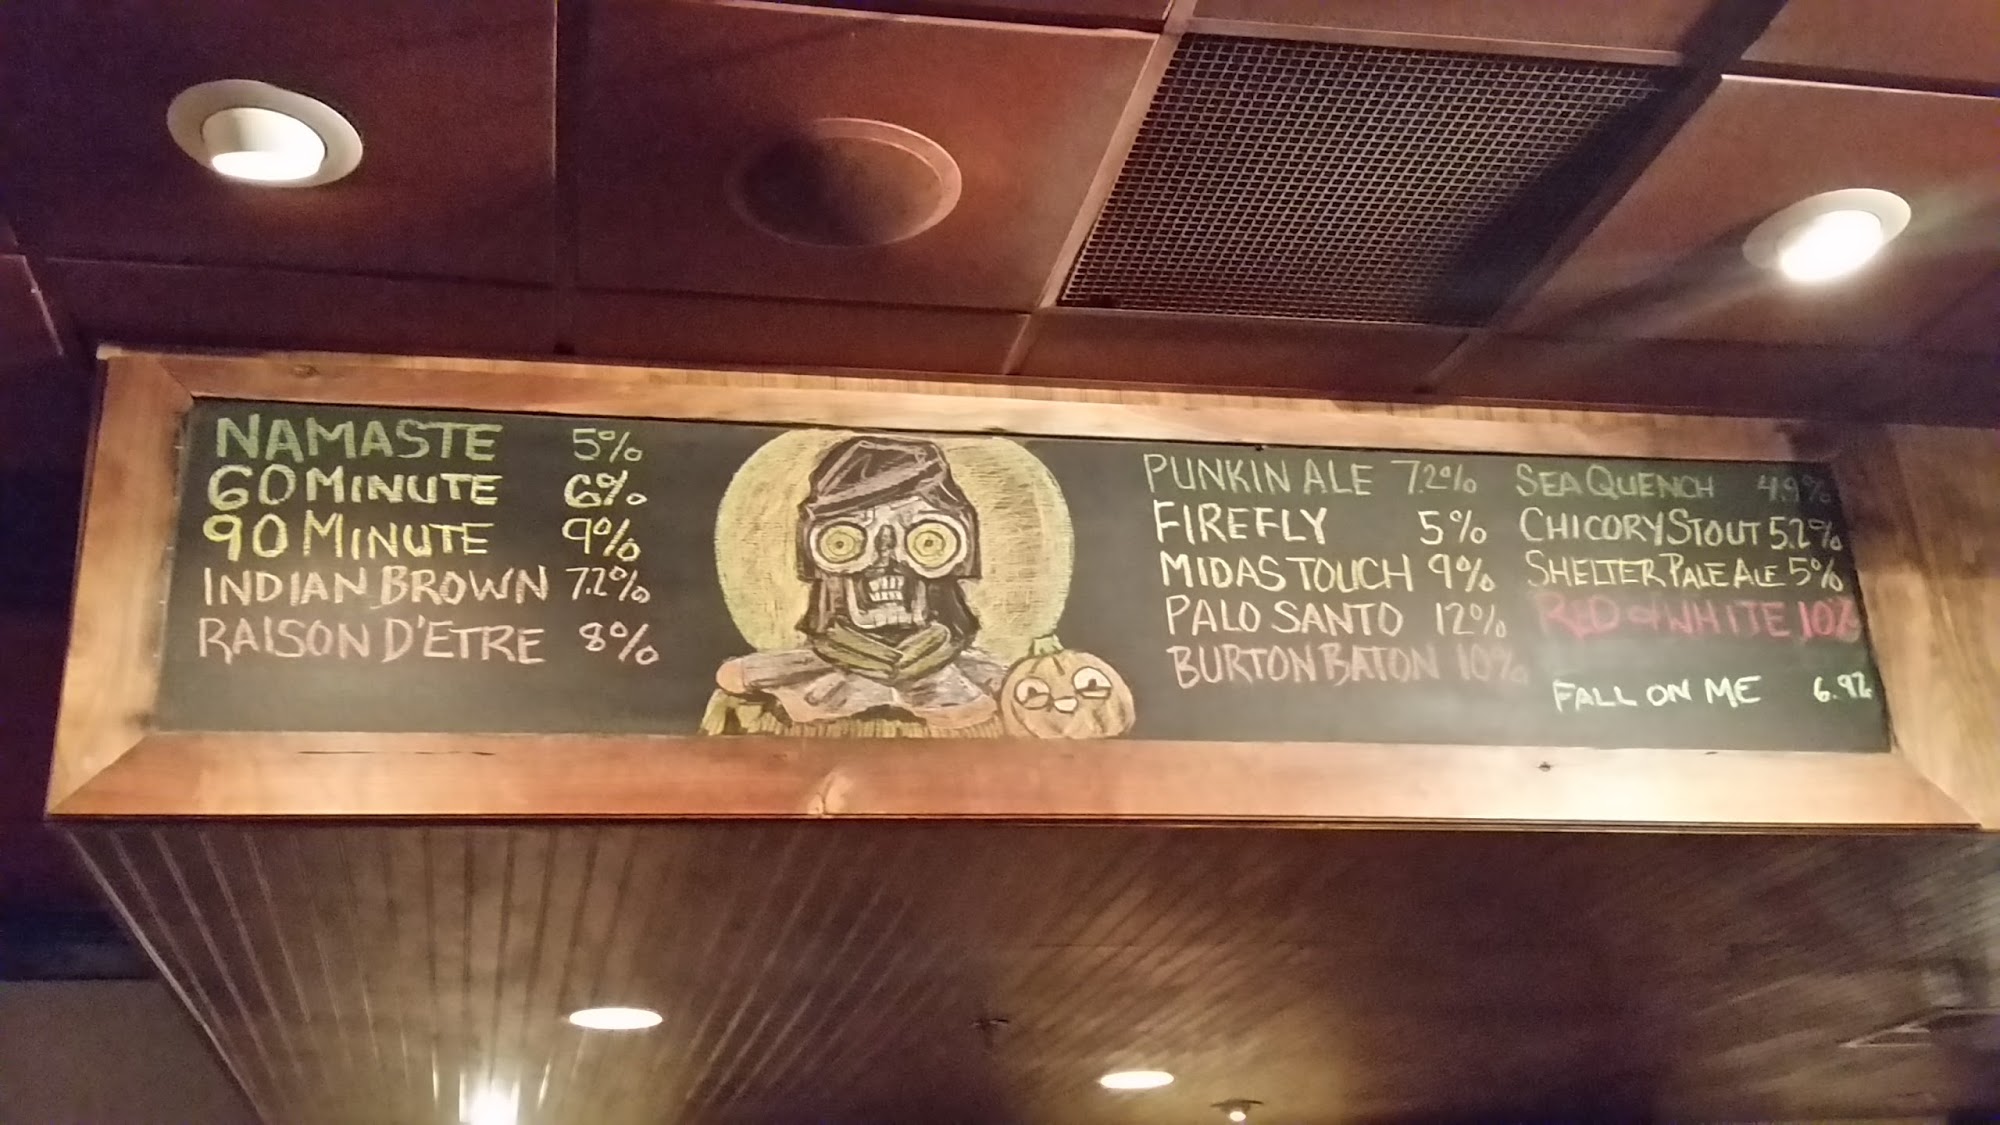 NAMASTE 5%
60 MINUTE 6%
90 MINUTE 9%
INDIAN BROWN 7.2%
RAISON D'ETRE 8%
PUNKIN ALE 7.2%
FIREFLY 5%
MIDAS TOUCH 9%
PALO SANTO 12%
BURTON BATON 10%
SEA QUENCH 4.9%
CHICORY STOUT 5.2%
SHELTER PALE ALE 5%
RED & WHITE 10%
FALL ON ME 6.9%